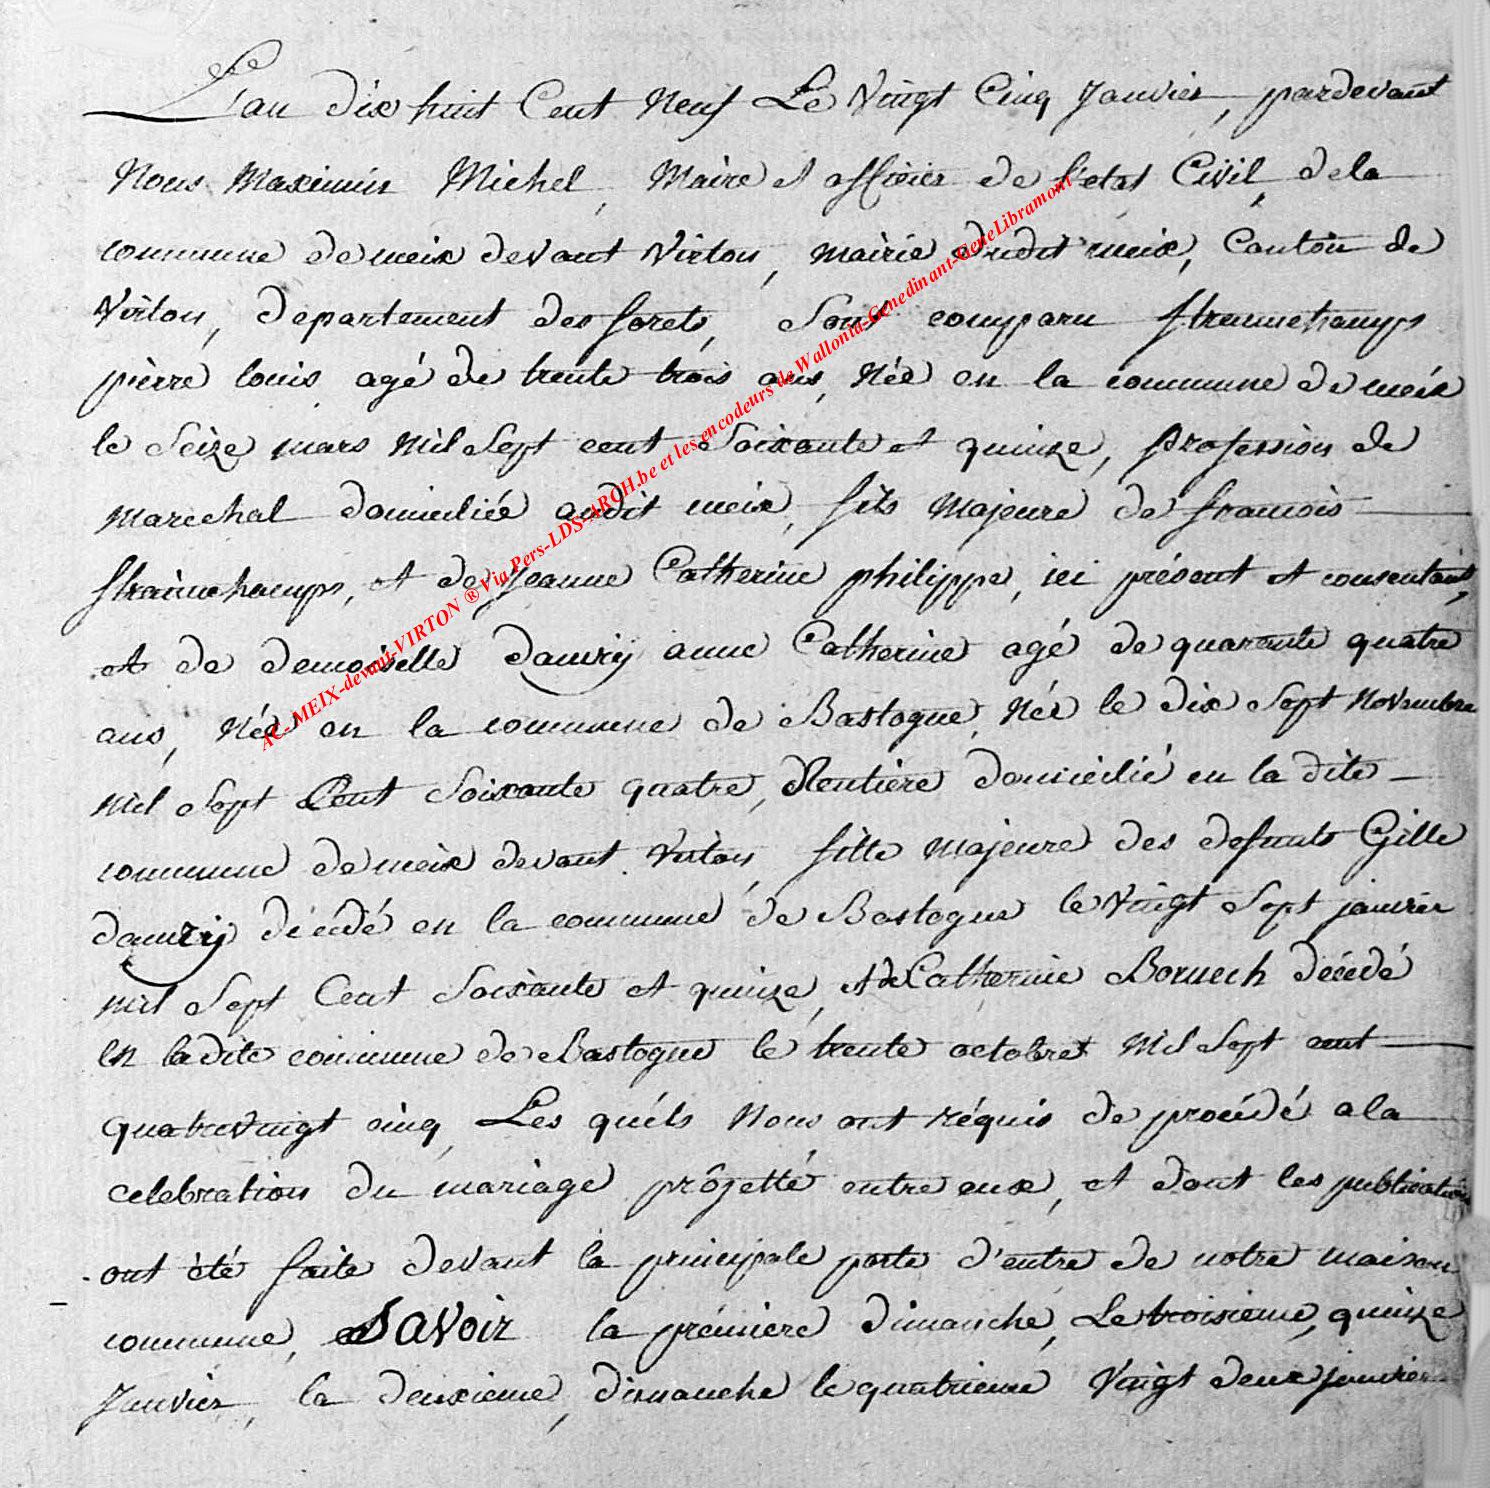 L'an dix huit Cent Neuf Le Vingt Cinq Janvier, pardevant
Nous Maximin Michel, Maire et officier de l'etat Civil, dela
commune de meix devant Virton, mairie dudit meix, Canton de
Virton, departement des forets, Sont comparu
pierre louis agé de trente trois ans, Née en la commune de meix
le Seize mars mil Sept cent Soixante et quinze, profession de
marechal domiciliée audit meix, fils majeure de francois
et de Jeanne Catherine philippe, ici présent et consentant,
et de demoiselle dauvrij anne Catherine agé de quarante quatre
ans, Née en la commune de Bastogne, Née le dix Sept Novembre
mil Sept Cent Soixante quatre, Rentière domicilié en la dite
commune de meix devant Virton, fille majeure des defunts Gille
dauvrij décédé en la commune de Bastogne le Vingt Sept janvier
mil Sept Cent Soixante et quinze, et de Catherine décédé
en ladite commune de Bastogne le trente octobre Mil Sept cent
quatrevingt cinq, Les quéls Nous ont réquis de procédé a la
celebration du mariage prôjetté entre eux, et dont les publication
ont été faite devant la principale porte d'entre de notre maison
commune, Savoir la prémière dimanche, Le troisieme, quinze
Janvier, la deuxieme, dimanche le quatrieme Vingt deux janvier
AC. MEIX-devant-VIRTON ® Via Pers-LDS-ARCH.be et les encodeurs de Wallonia-Genedinant-GeneLibramont